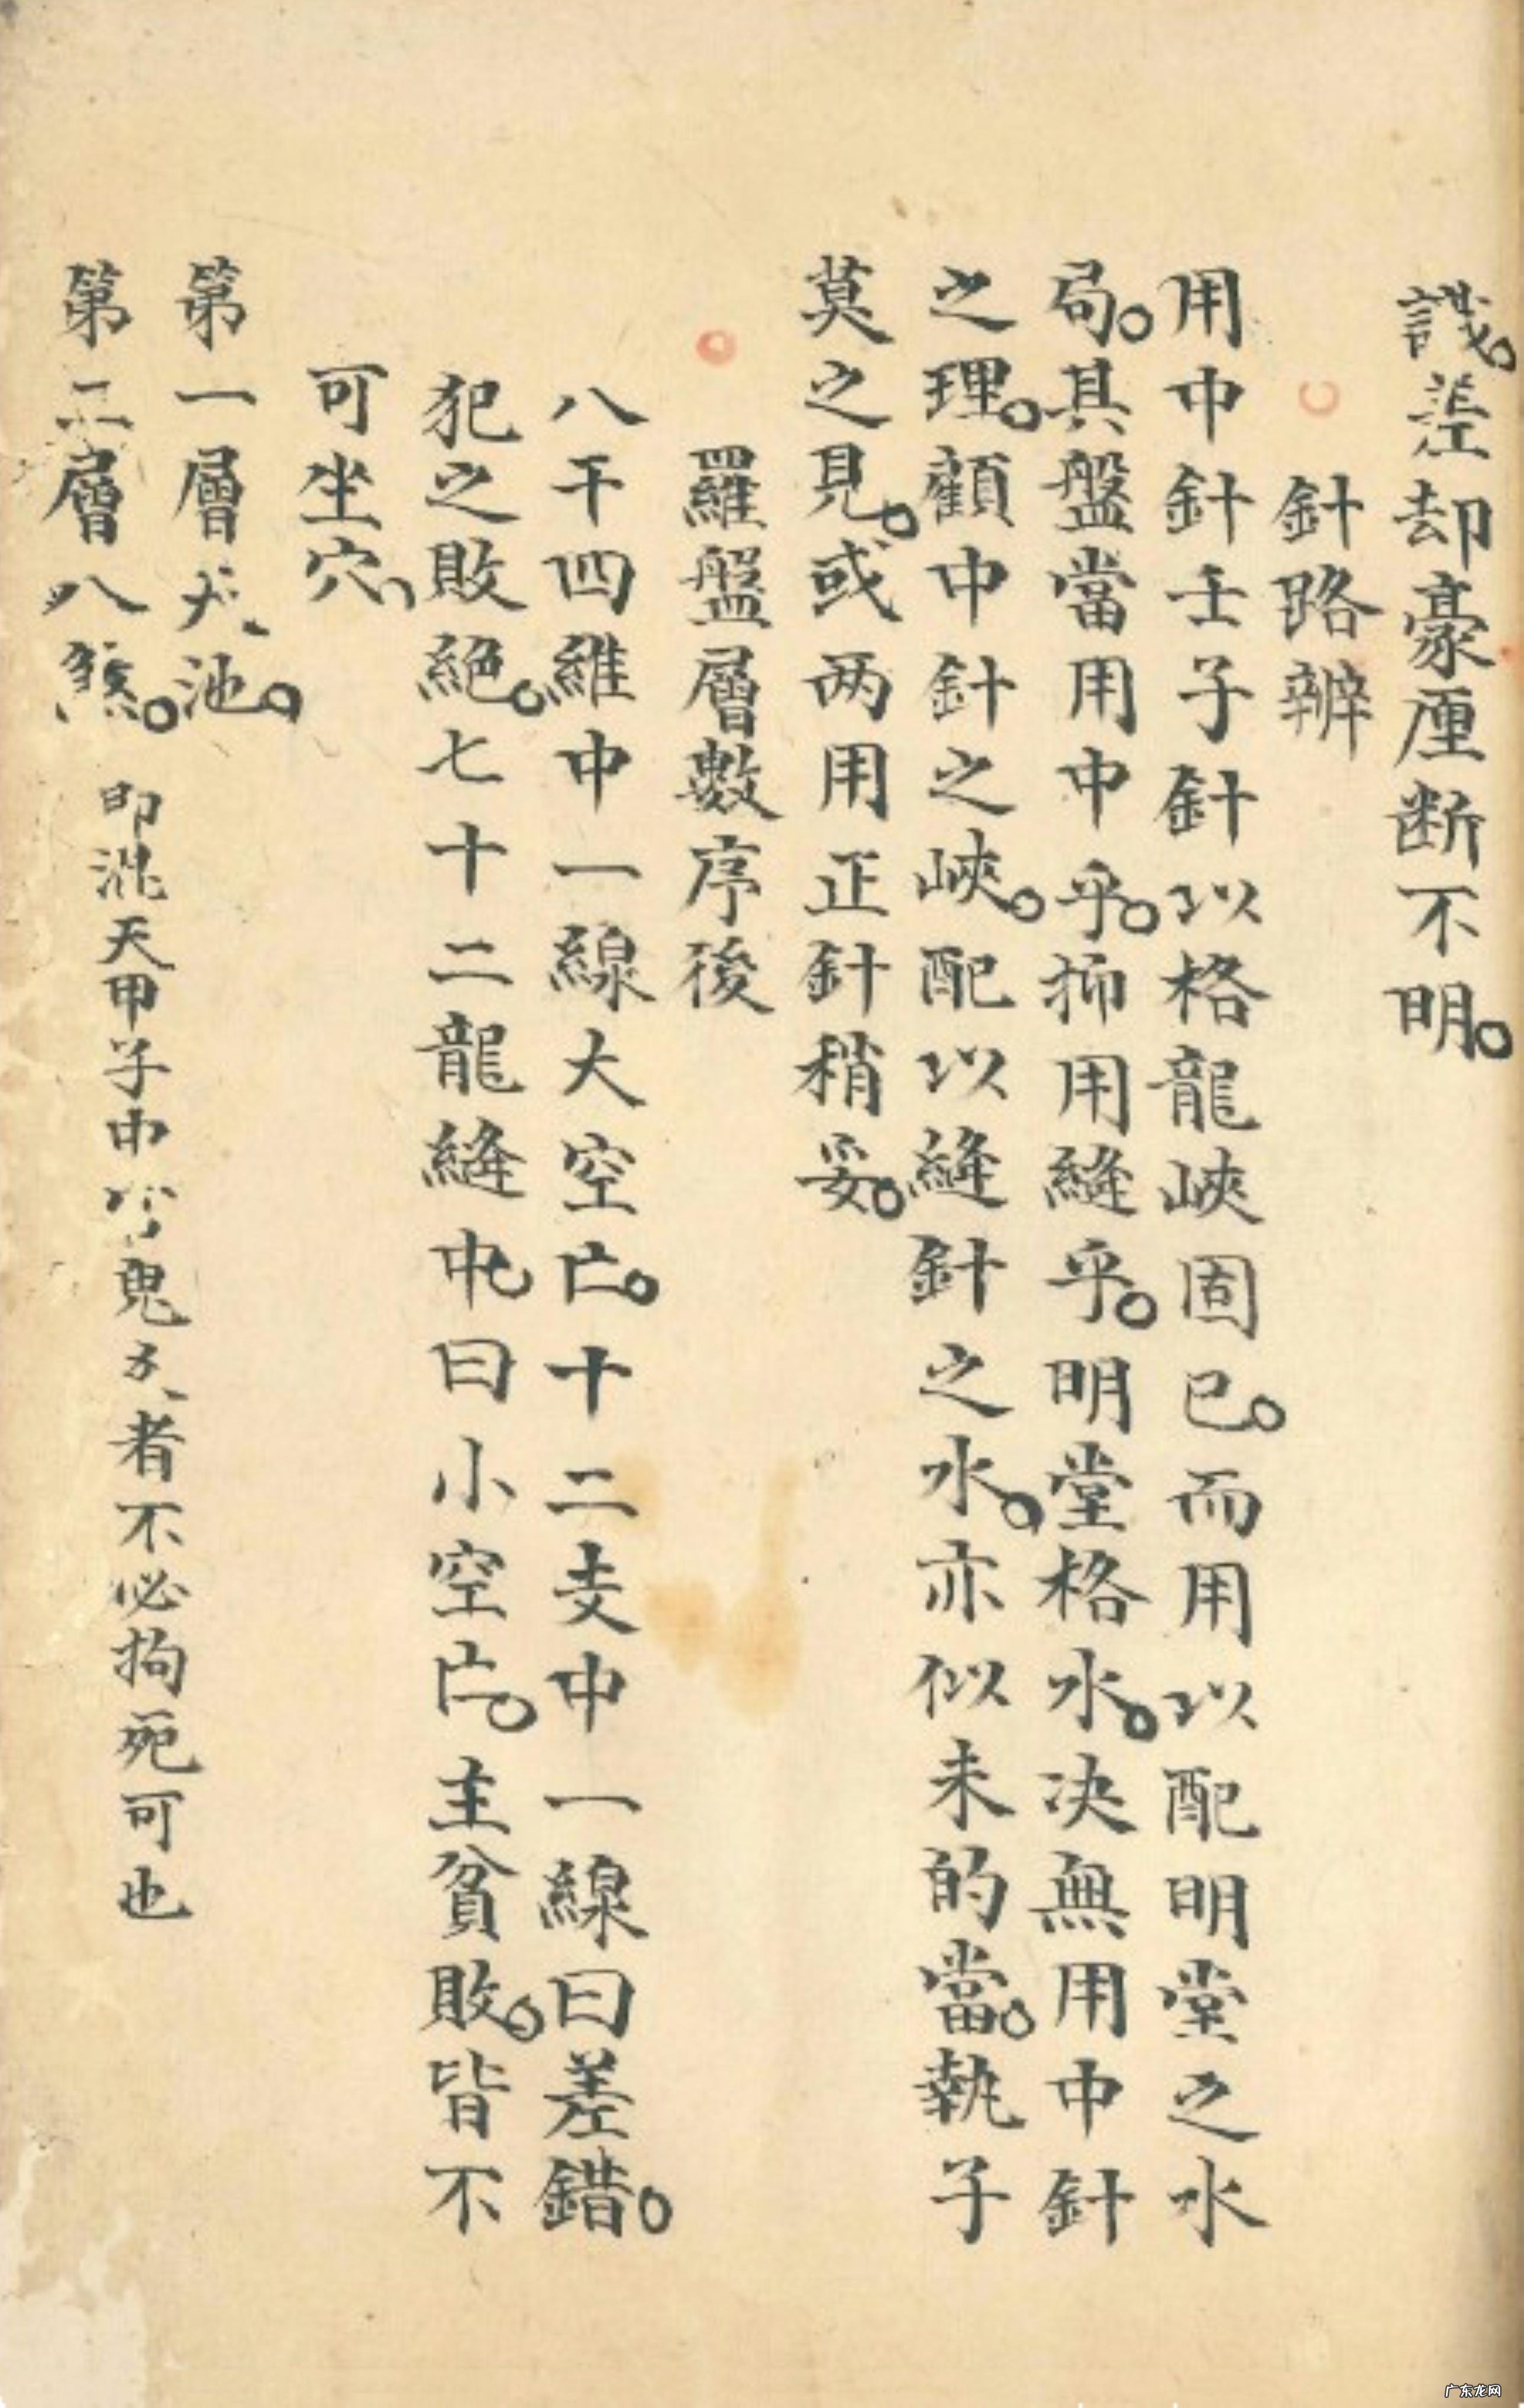 識。差却豪厘断不明。
針路辨
用中針壬子針以格龍峽固已。而用以配明堂之水
局。其盤當用中乎。抑用縫乎。明堂格水。决無用中針
之理。顧中針之峽。配以縫針之水。亦似未的當。執子
莫之見。或两用正針稍妥。
羅盤層數序後
八干四維中一線大空亡。十二支中一線曰差錯。
犯之敗絕。七十二龍縫中曰小空亡。主貧敗。皆不
可坐穴、
第一層天池。
第二層八煞。 即渾天甲子中官鬼爻者不必拘死可也
广东龙网